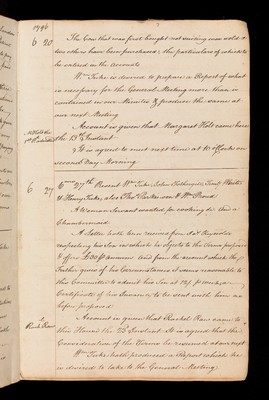 1796
6 20 The Cow that was first bought not arriving was sold &
two others have been purchased, the particulars of which to
be entred in the Accounts
Wm Tuke is desired to prepare a Report of what
is necessary for the General Meeting more than is
contained in our Minutes & produce the same at
our next Meeting
Account is given that Margaret Holt came here
the 13th Instant
It is agreed to meet next time at 10 o'Clock on
Second Day Morning
6 27 6mo 27th Present Wm Tuke
& Henry Tuke, also Thos
A Woman Servant wanted for cooking &c and a
Chambermaid
A Letter hath been received from
respecting his Son in which he objects to the Terms
& offers Annum And from the account which the
Father gives of his Circumstances it seems reasonable to
this Committee to admit his Son at a
Certificate of his Insanity to be sent with him as
before prepared
Account is given that Rachel Raw came to
this House the 22d Instant. It is agreed that the
Consideration of the Terms be resumed at our next
Wm Tuke hath produced a Report which he
is desired to take to the General Meeting
Rach Raw